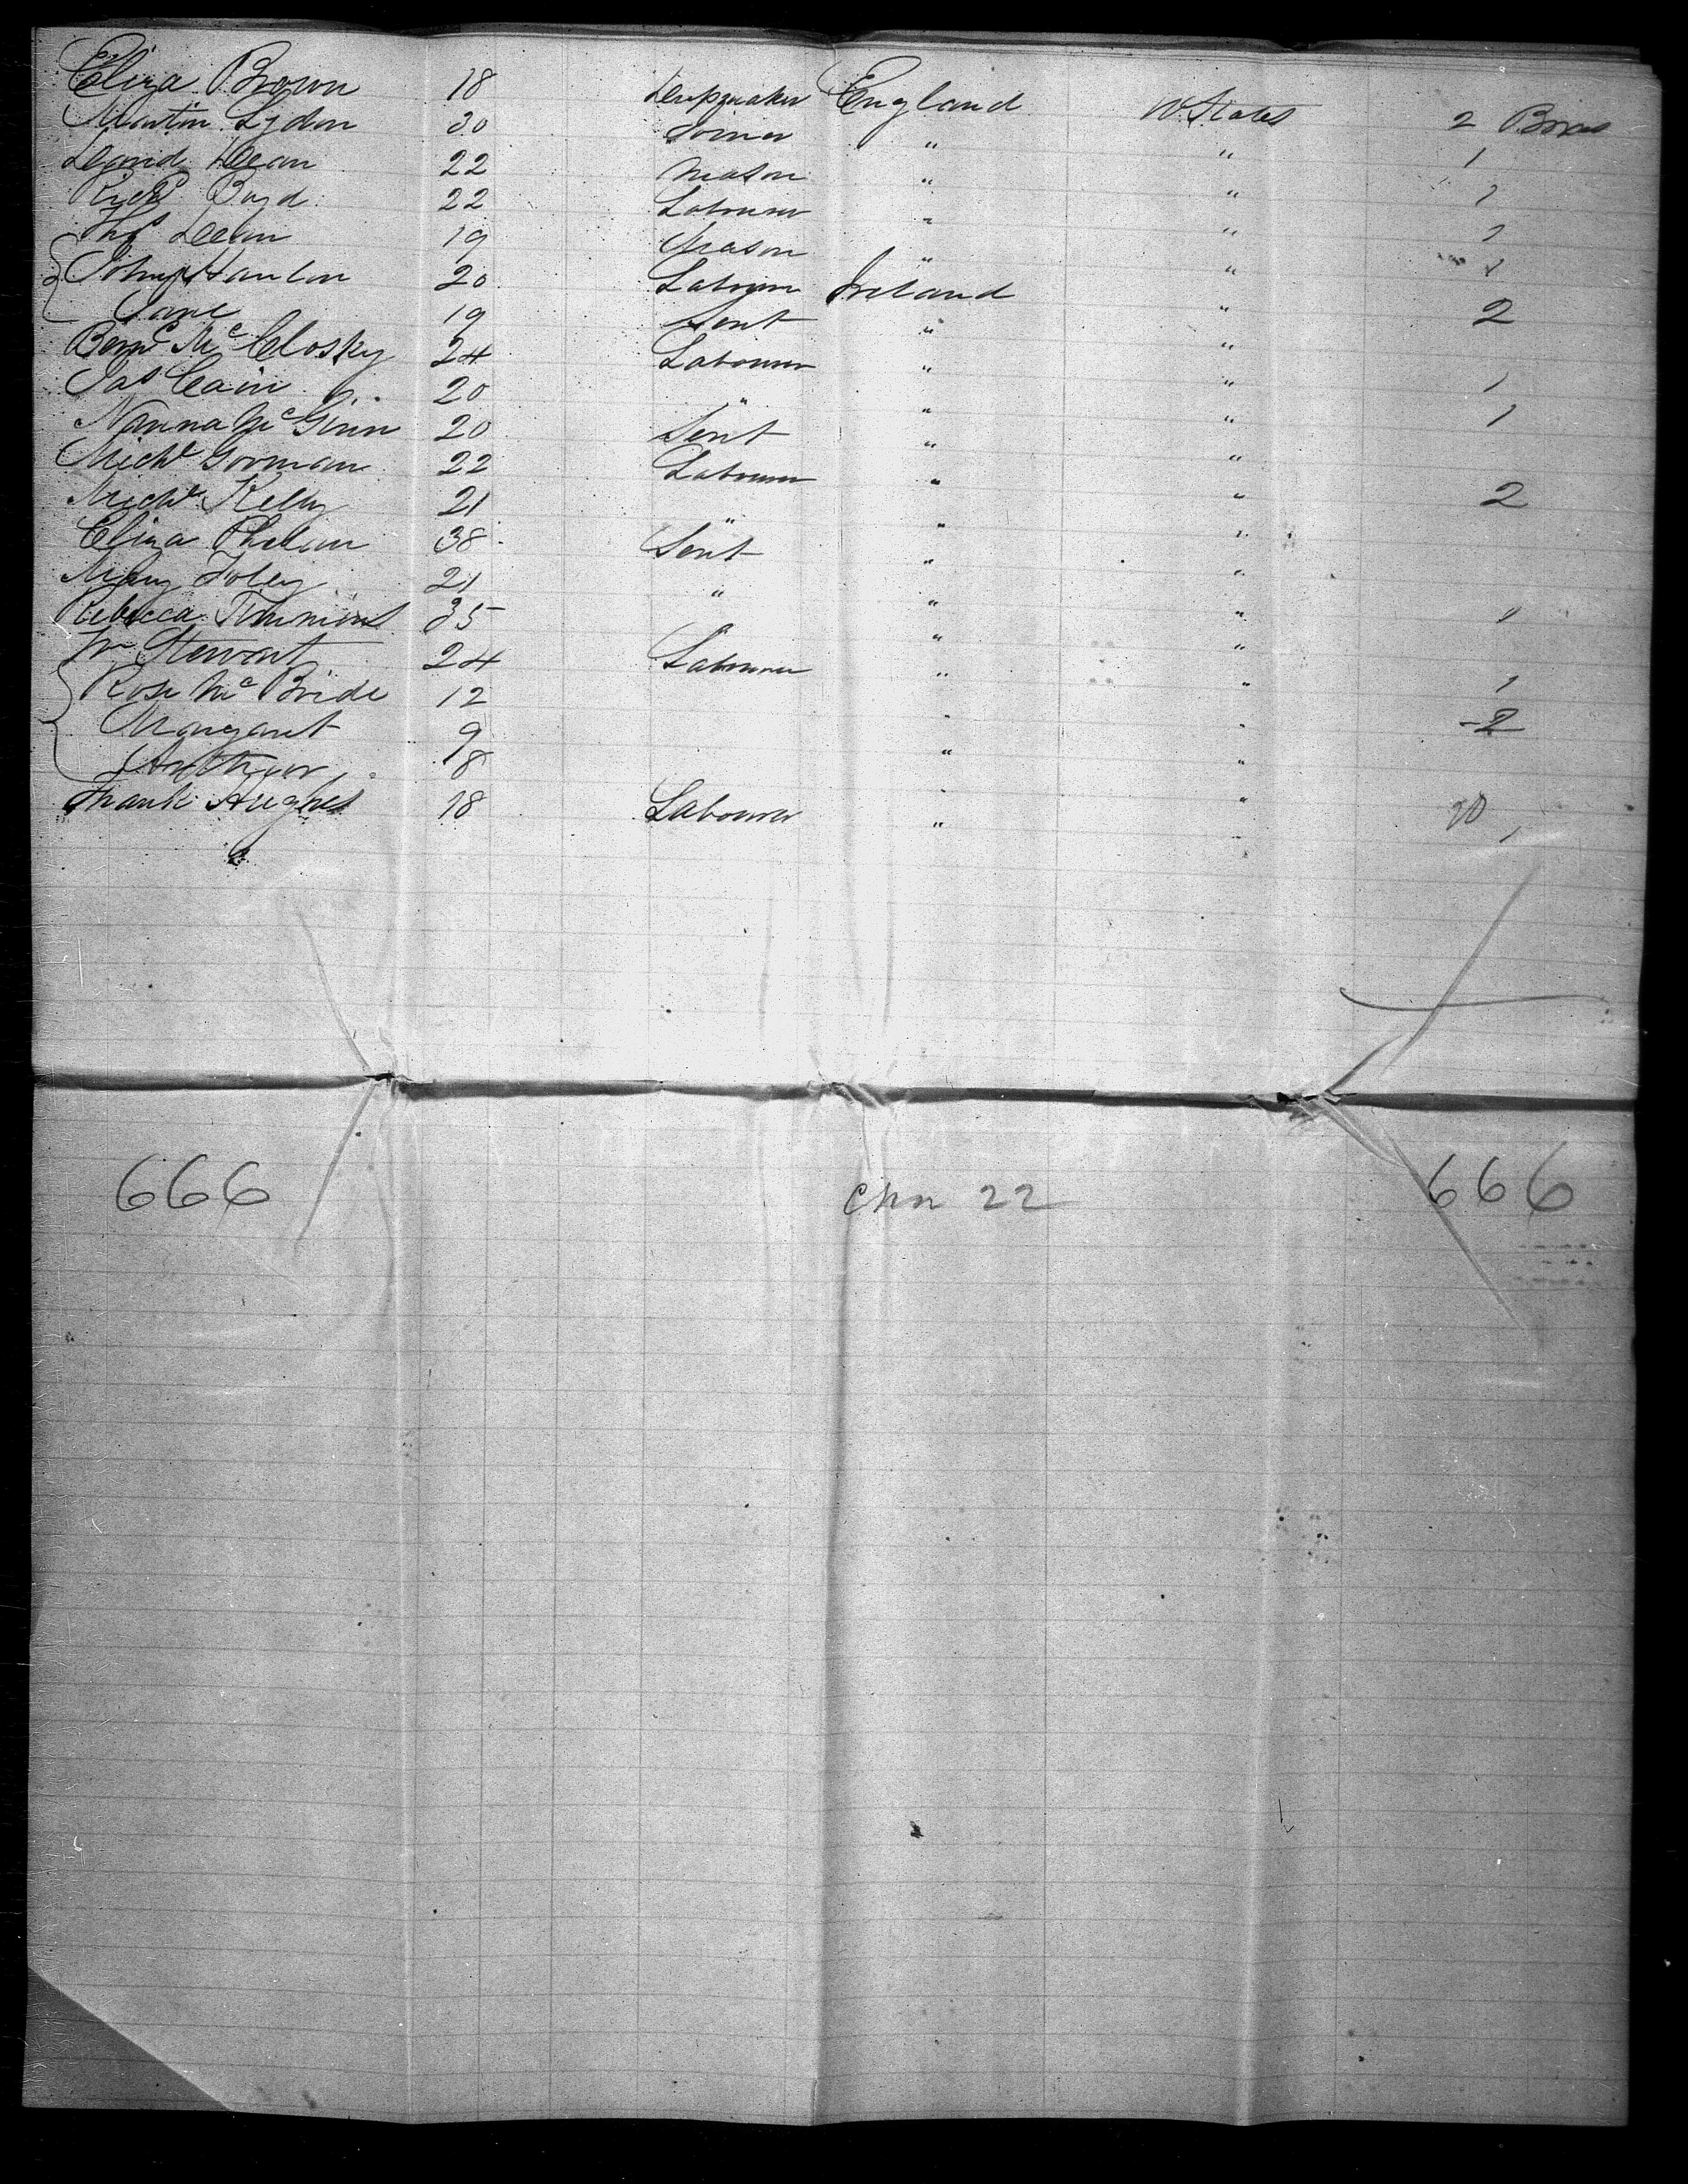 Eliza Brown 18 England U States 2 Boxes
Martin Lydon 30 Joiner " " 1
Dean 22 Mason " " 1
Richd Boyd 22 Labourer " " 1
Thos Dean 19 Mason " " 1
John Hanlon 20 Labourer Ireland " 2
Jane 19 Servt " "
Bernd McClosky 24 Labourer " " 1
Jas Cain 20 " " " 1
McGinn 20 Servt " "
Michl Gorman 22 Labourer " " 2
Michl Kelly 21 " " "
Eliza Phelan 38 Servt " "
Mary Foley 21 " " " 1
Rebecca Timmins 35 " "
Wm Stewart 24 Labourer " " 1
Rose McBride 12 " " 2
Margaret 9 " "
Arthur 8 " "
Frank Hughes 18 Labourer " " 1
20
666 22 666